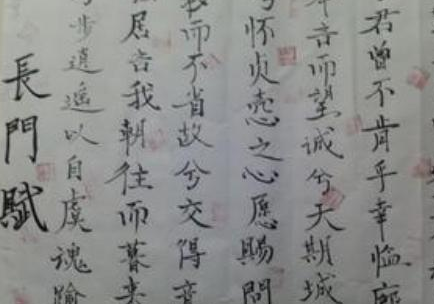 長門賦
步逍遥以自虞魂踰
居言我朝往而暮来
而不省故兮交得意
怀贞悫之心愿赐問
言而望诚兮天期城
君曾不肯乎幸临廓